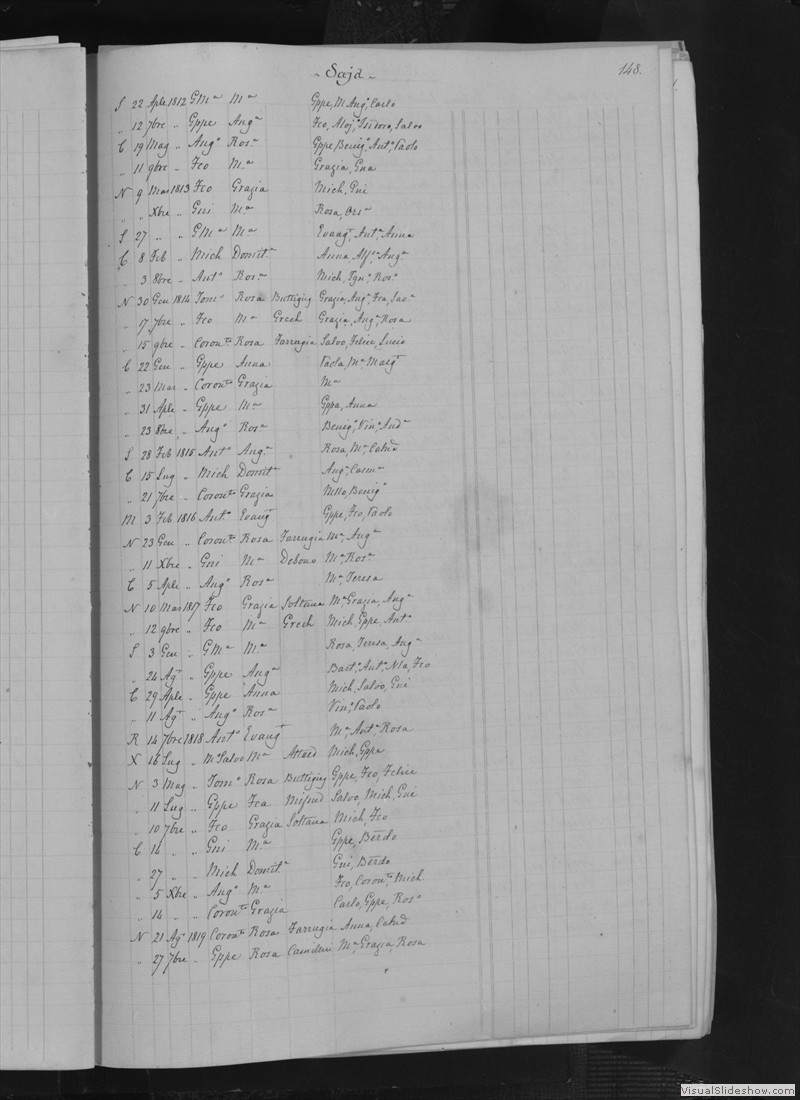 Sajd
148.
S 22 Aple 1812 GMa Ma Gppe, M Anga, Carlo
„ 12 7bre „ Gppe Anga Fco, Aloja, Isidoro, Salvo
C 19 Mag „ Ango Rosa Gppe, Benigo, Anto, Paolo
„ 11 9bre „ Fco Ma Grazia, Gna
N 9 Mar 1813 Fco Grazia Mich, Gni
„ „ Xbre „ Gni Ma Rosa, Orsa
S 27 „ „ GMa Ma Evangta, Anta, Anna
C 8 Feb „ Mich Domita Anna, Alfa, Anga
„ 3 8bre „ Anto Rosa Mich, Igno, Roso
N 30 Gen 1814 Tomo Rosa Buttigieg Grazia, Anga, Fca
„ 17 7bre „ Fco Ma Grech Grazia, Anga, Rosa
„ 15 9bre „ Coronto Rosa Farrugia Salvo, Felice, Lucio
C 22 Gen „ Gppe Anna Paola, Ma, Margta
„ 23 Mar „ Coronto Grazia Ma
„ 31 Aple „ Gppe Ma Gppa, Anna
„ 23 8bre „ Ango Rosa Benigo, Vino, Anda
S 28 Feb 1815 Anto Anga Rosa, Ma, Catnd
C 15 Lug „ Mich Domita Anga
„ 21 7bre „ Coronto Grazia Benigo
M 3 Feb 1816 Anto Evangta Gppe, Fco, Paolo
N 23 Gen „ Coronto Rosa Farrugia Ma, Anga
„ 11 Xbre „ Gni Ma Debono Ma, Rosa
C 5 Aple „ Ango Rosa Ma, Teresa
N 10 Mar 1817 Fco Grazia Soltana Ma, Grazia, Anga
„ 12 9bre „ Fco Ma Grech Mich, Gppe, Anto
S 3 Gen „ GMa Ma Rosa, Teresa, Anga
„ 24 Agto „ Gppe Anga Barto, Anto, Nla, Fco
C 29 Aple „ Gppe Anna Mich, Salvo, Gni
„ 11 Agto „ Ango Rosa Vino, Paolo
R 14 7bre 1818 Anto Evangta Ma, Anta, Rosa
X 16 Lug „ Mo Salvo Ma Attard Mich, Gppe
N 3 Mag „ Tomo Rosa Buttigieg Gppe, Fco, Felice
„ 11 Lug „ Gppe Fca Mifsud Salvo, Mich, Gni
„ 10 7bre „ Fco Grazia Soltana Mich, Fco
C 14 „ „ Gni Ma Gppe, Berdo
„ 27 „ „ Mich Domita Gni, Berdo
„ 5 Xbre „ Ango Ma Fco, Coronto, Mich
„ 14 „ „ Coronto Grazia Carlo, Gppe, Roso
N 21 Agto 1819 Coronto Rosa Farrugia Anna, Catnd
„ 27 7bre „ Gppe Rosa Camilleri Ma, Grazia, Rosa
VisualSlideshow.com